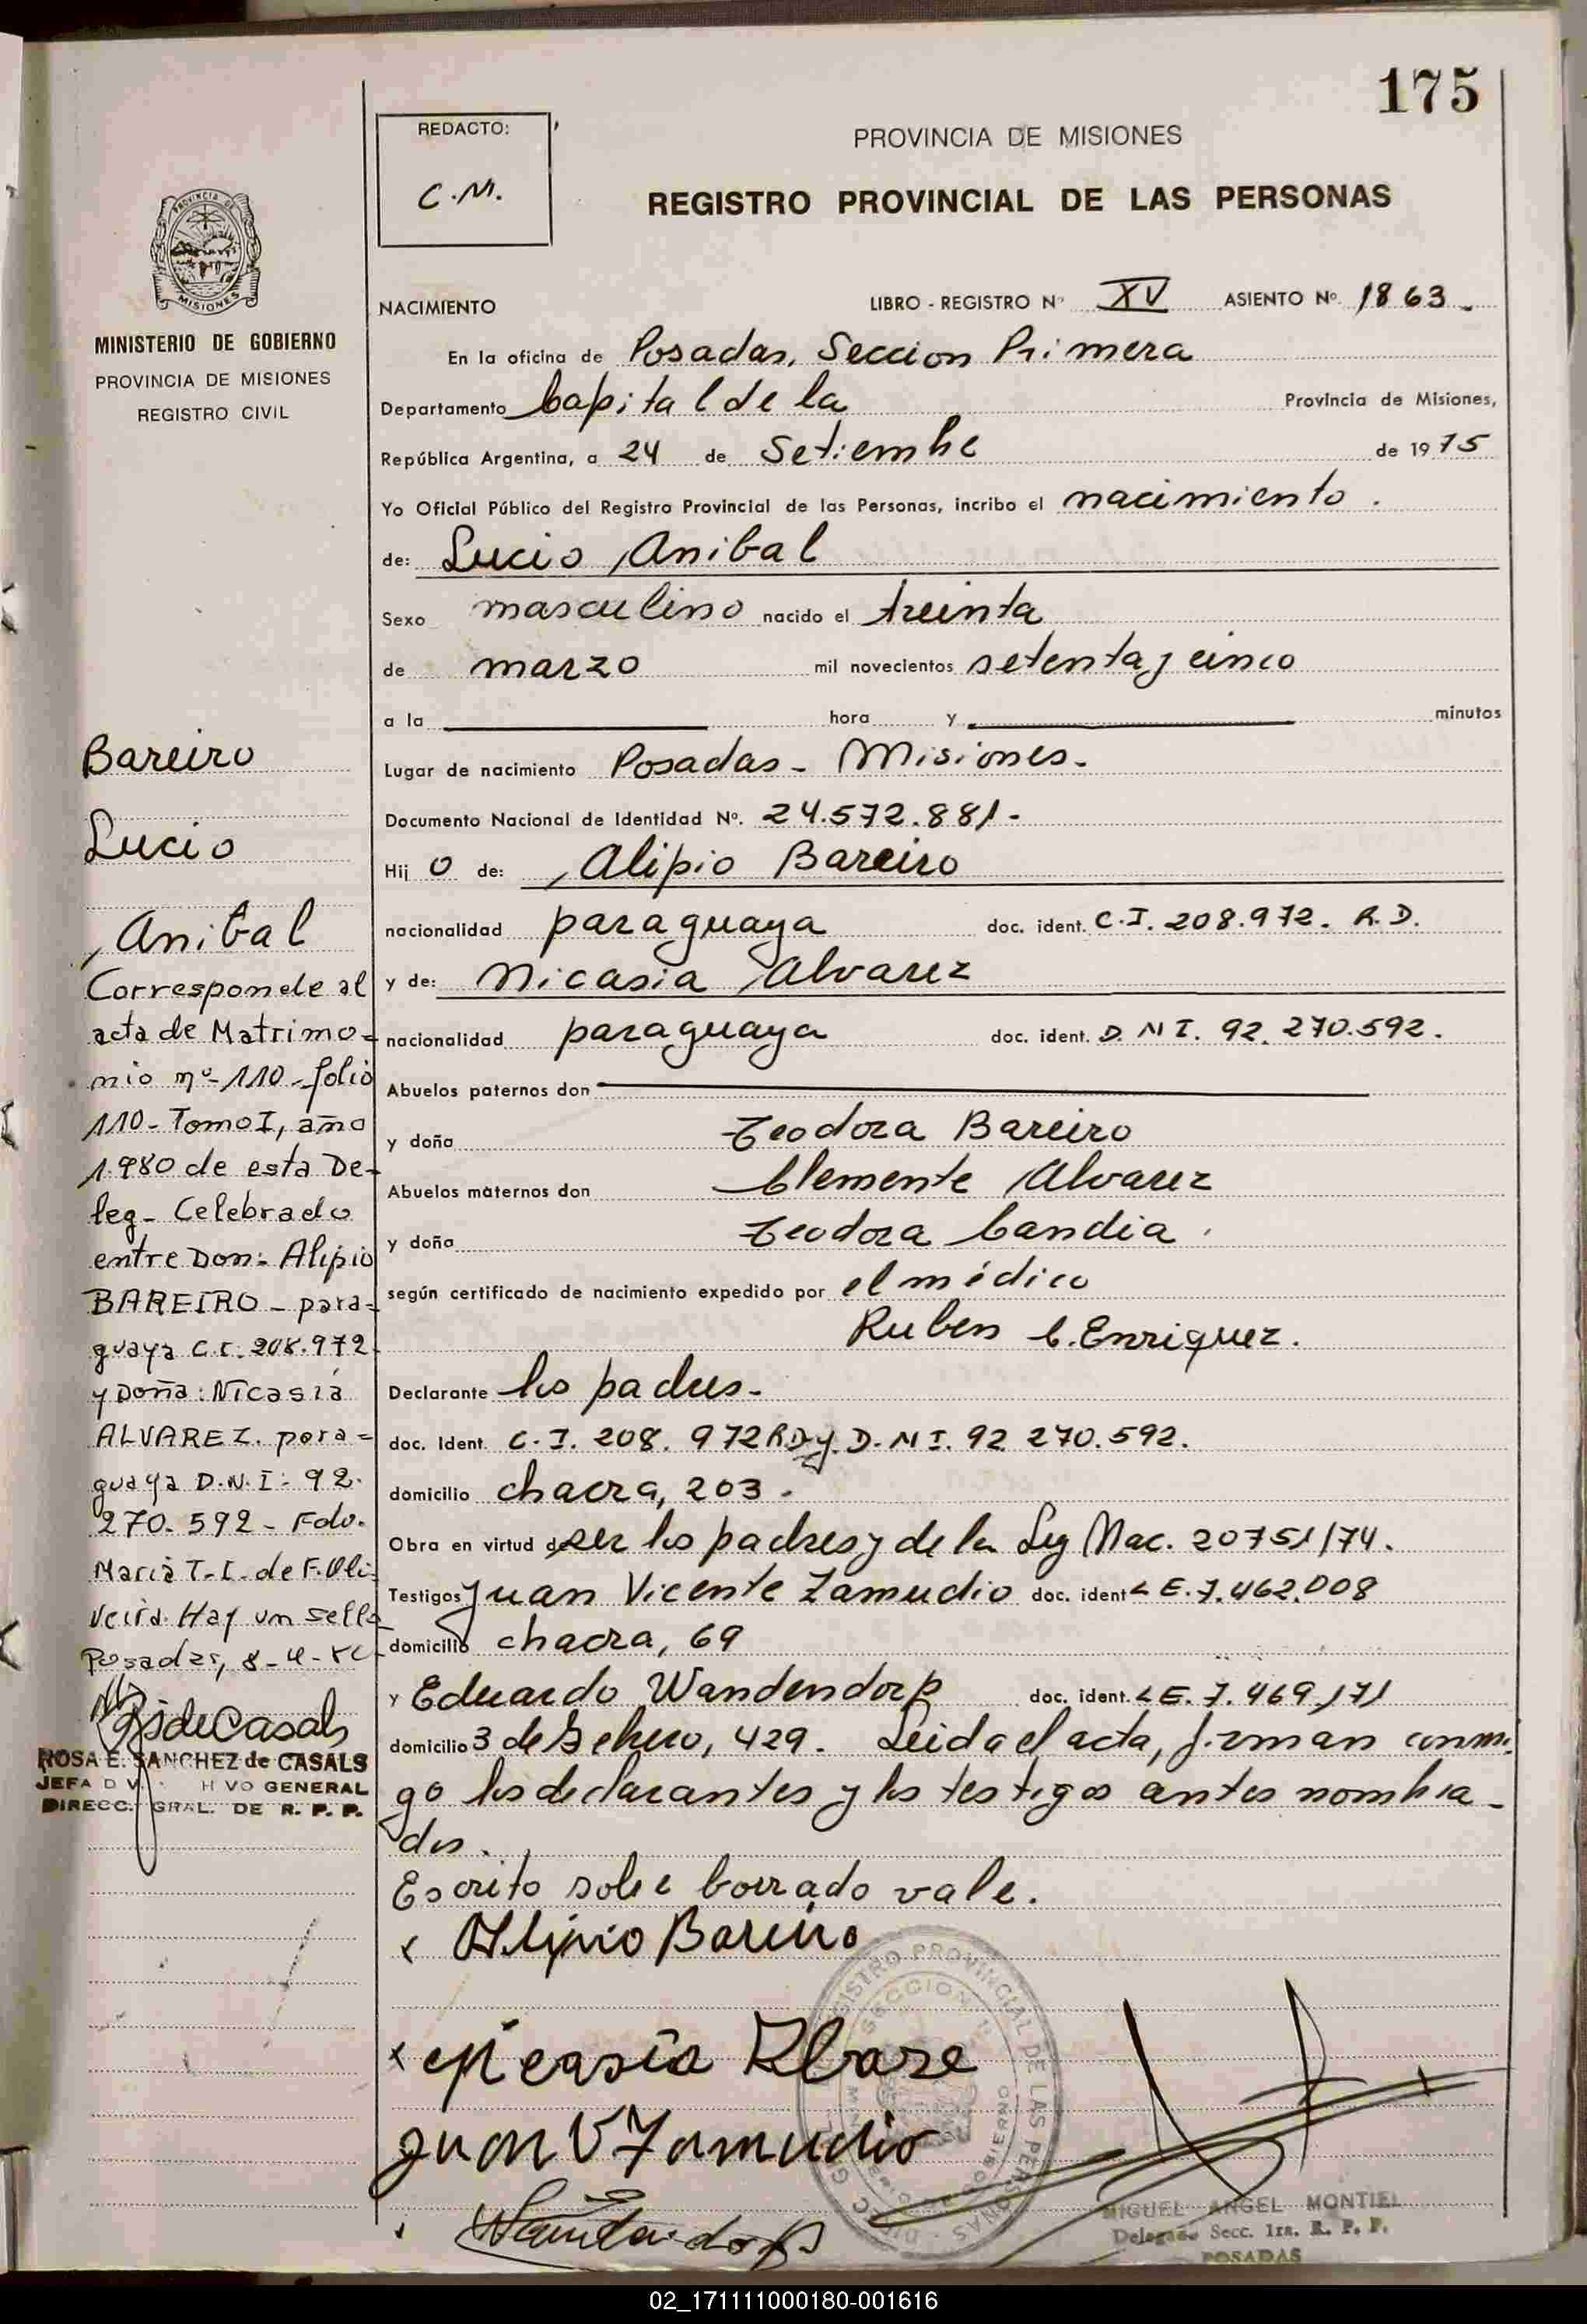 175
REDACTO:
C.M.
PROVINCIA DE MISIONES
REGISTRO PROVINCIAL DE LAS PERSONAS
PROVINCIA DE
MISIONES
MINISTERIO DE GOBIERNO
PROVINCIA DE MISIONES
REGISTRO CIVIL
NACIMIENTO LIBRO - REGISTRO Nº XV ASIENTO Nº 1863
En la oficina de Posadas, Seccion Primera
Departamento Capital de la Provincia de Misiones,
República Argentina, a 24 de Setiembre de 1975
Yo Oficial Público del Registro Provincial de las Personas, incribo el nacimiento.
de: Lucio Anibal
Sexo masculino nacido el treinta
de marzo mil novecientos setenta y cinco
a la hora y minutos
Lugar de nacimiento Posadas - Misiones.
Documento Nacional de Identidad Nº. 24.572.881-
Hij o de: Alipio Bareiro
nacionalidad paraguaya doc. ident. C.I. 208.972. R.D.
y de: Nicasia Alvarez
nacionalidad paraguaya doc. ident. D.N I. 92.270.592.
Abuelos paternos don
y doña Teodora Bareiro
Abuelos maternos don Clemente Alvarez
y doña Teodora Candia
según certificado de nacimiento expedido por el médico
Ruben C. Enriquez.
Declarante los padres-
doc. Ident. C.I. 208.972 RD y D.N I. 92 270.592.
domicilio chacra, 203.
Obra en virtud de ser los padres y de la Ley Nac. 20751/74.
Testigos Juan Vicente Zamudio doc. ident L E. 7.462.008
domicilio chacra, 69
y Eduardo Wandendorp doc. ident. L E. 7.469.171
domicilio 3 de Febrero, 429. Leida el acta, firman conmi
go los declarantes y los testigos antes nombra-
dos.
Escrito sobre borrado vale.
x Alipio Bareiro
x Nicasia Albare
Juan V Zamudio
Bareiro
Lucio
Anibal
Corresponde al
acta de Matrimo=
nio nº-110-folio
110-Tomo I, año
1.980 de esta De-
leg- Celebrado
entre Don: Alipio
BAREIRO - para=
guaya C.I. 208.972
y Doña: Nicasia
ALVAREZ. para=
guaya D.N.I: 92.
270.592 - Fdo.
Maria T. I. de F. Oli-
veira. Hay un sello
Posadas, 8-4-
ROSA E. SANCHEZ de CASALS
JEFA D V H VO GENERAL
DIRECC. GRAL. DE R. P. P.
REGISTRO PROVINCIAL DE LAS PERSONAS
SECCION 1ª
MIGUEL ANGEL MONTIEL
Delegado Secc. 1ra. R. P. P.
POSADAS
02_171111000180-001616